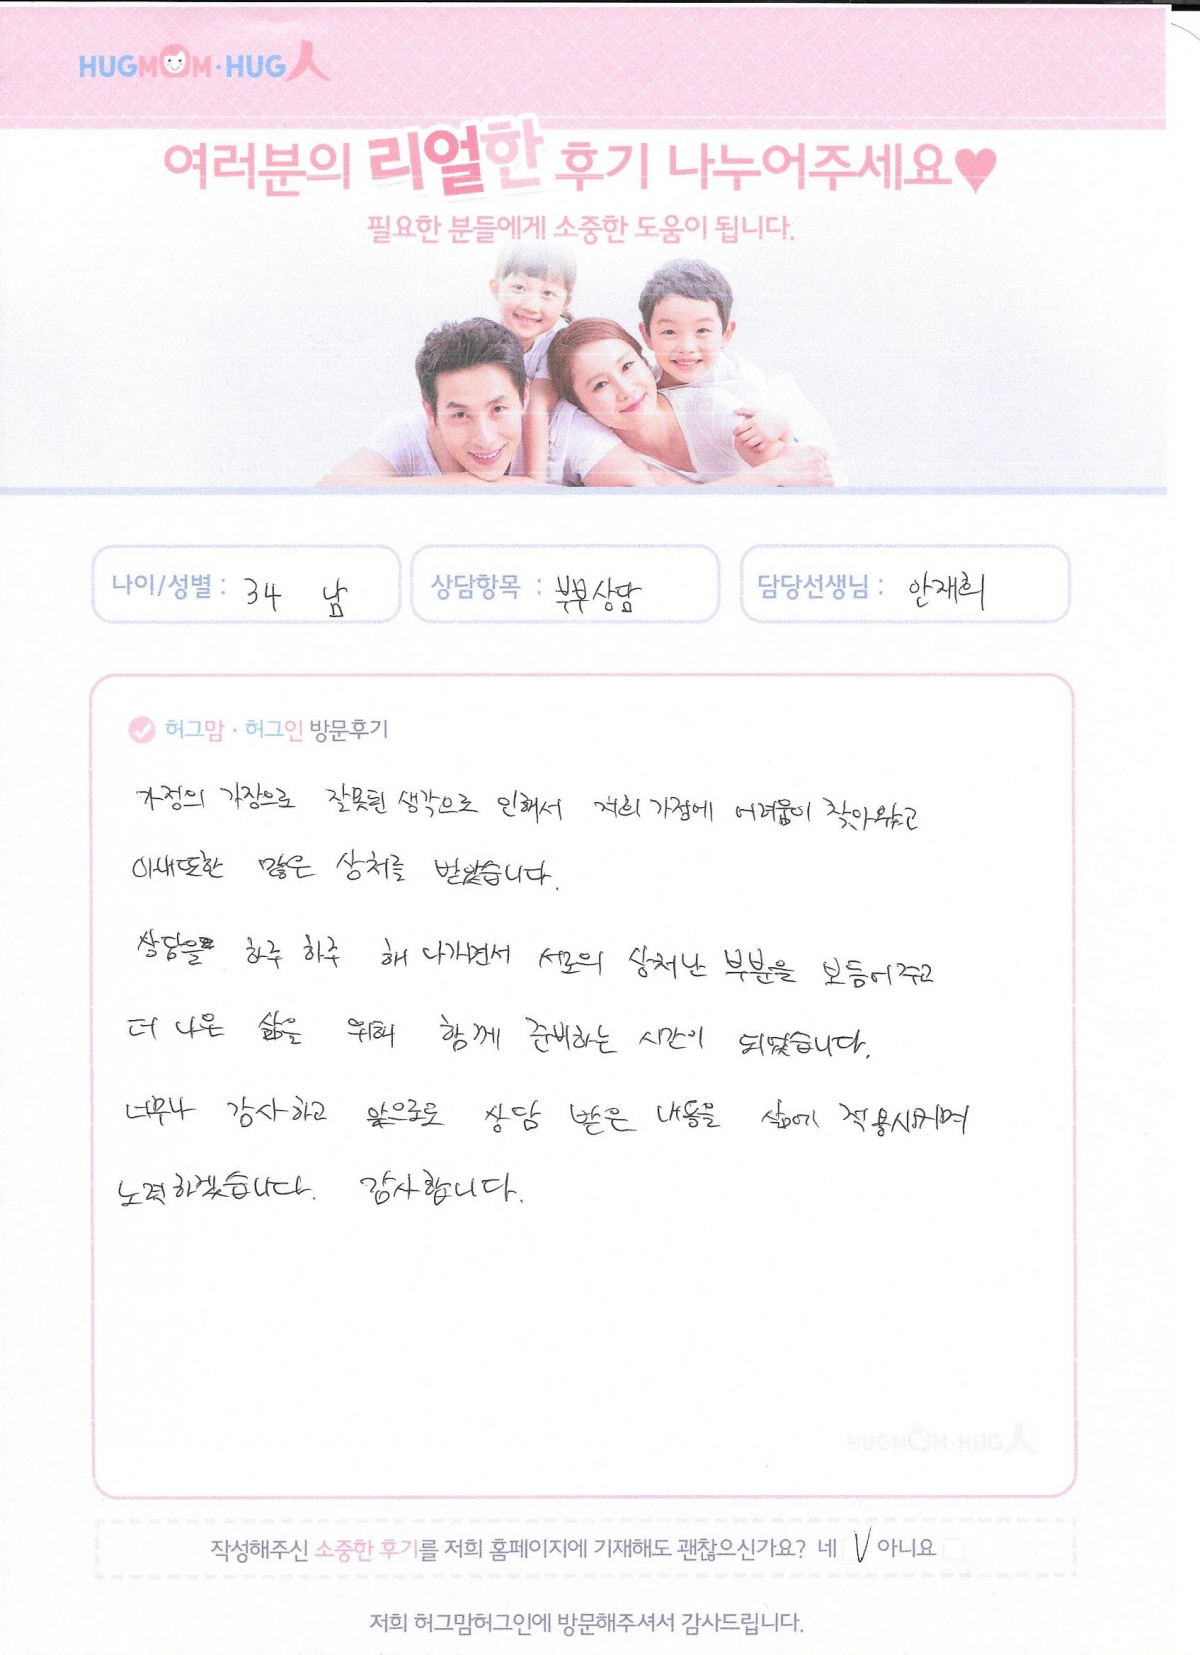 HUGMOM·HUG人
여러분의 리얼한 후기 나누어주세요♥
필요한 분들에게 소중한 도움이 됩니다.
나이/성별 : 34 남 상담항목 : 부부상담 담당선생님 : 안재희
허그맘 · 허그인 방문후기
가정의 가장으로 잘못된 생각으로 인해서 저희 가정에 어려움이 찾아왔고
아내또한 많은 상처를 받았습니다.
상담을 하주 하주 해 나가면서 서로의 상처난 부분을 보듬어주고
더 나은 삶을 위해 함께 준비하는 시간이 되었습니다.
너무나 감사하고 앞으로도 상담 받은 내용을 삶에 적용시키며
노력하겠습니다. 감사합니다.
HUGMOM·HUG人
작성해주신 소중한 후기를 저희 홈페이지에 기재해도 괜찮으신가요? 네 V 아니요
저희 허그맘허그인에 방문해주셔서 감사드립니다.